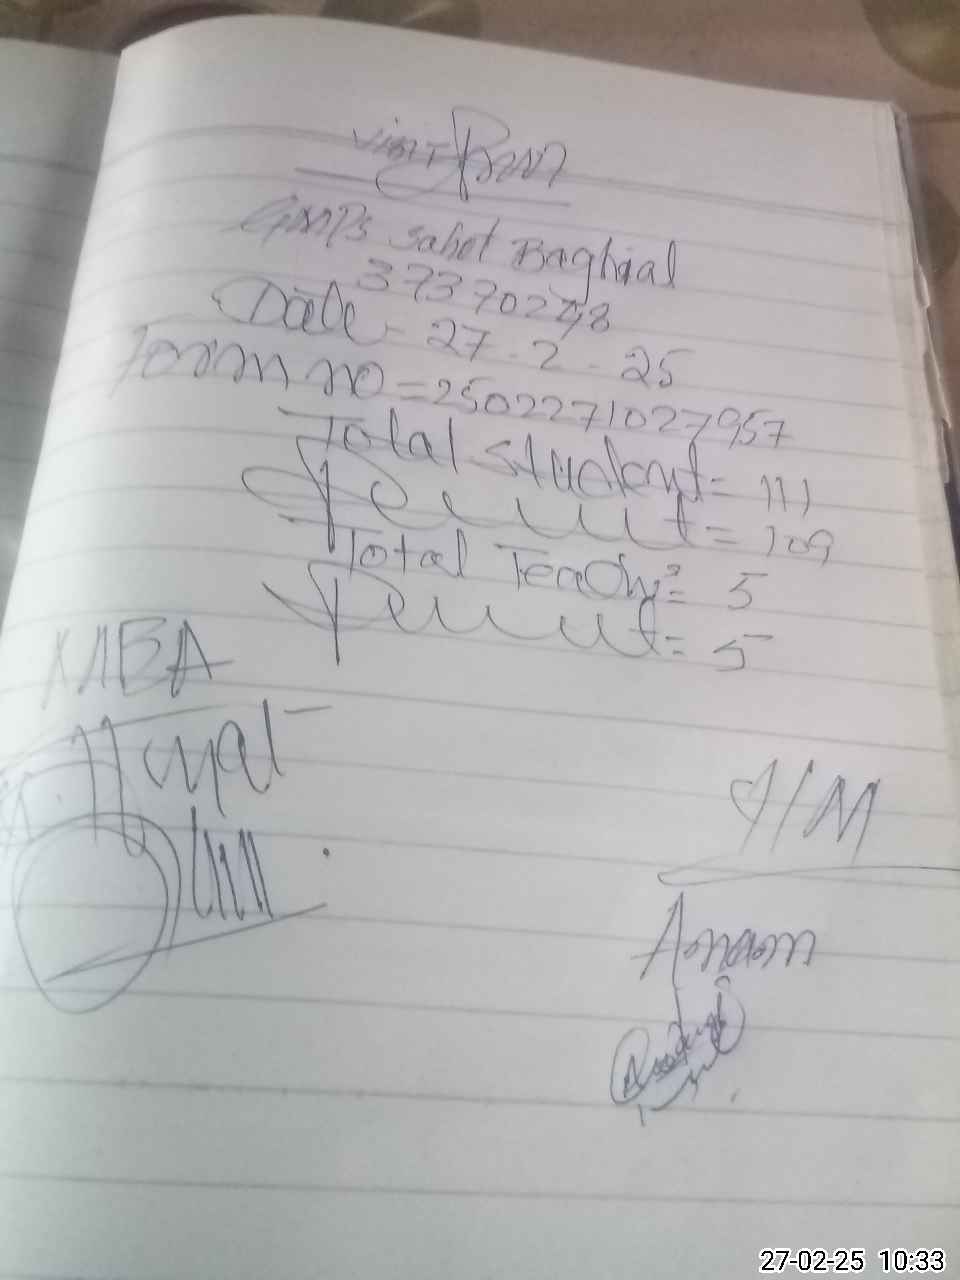 Visit Proof
GMPS Sahot Baghial
37370248
Date - 27-2-25
Form no = 2502271027957
Total student = 111
Present = 109
Total Teacher = 5
Present = 5
MEA
H/M
Anam
27-02-25 10:33